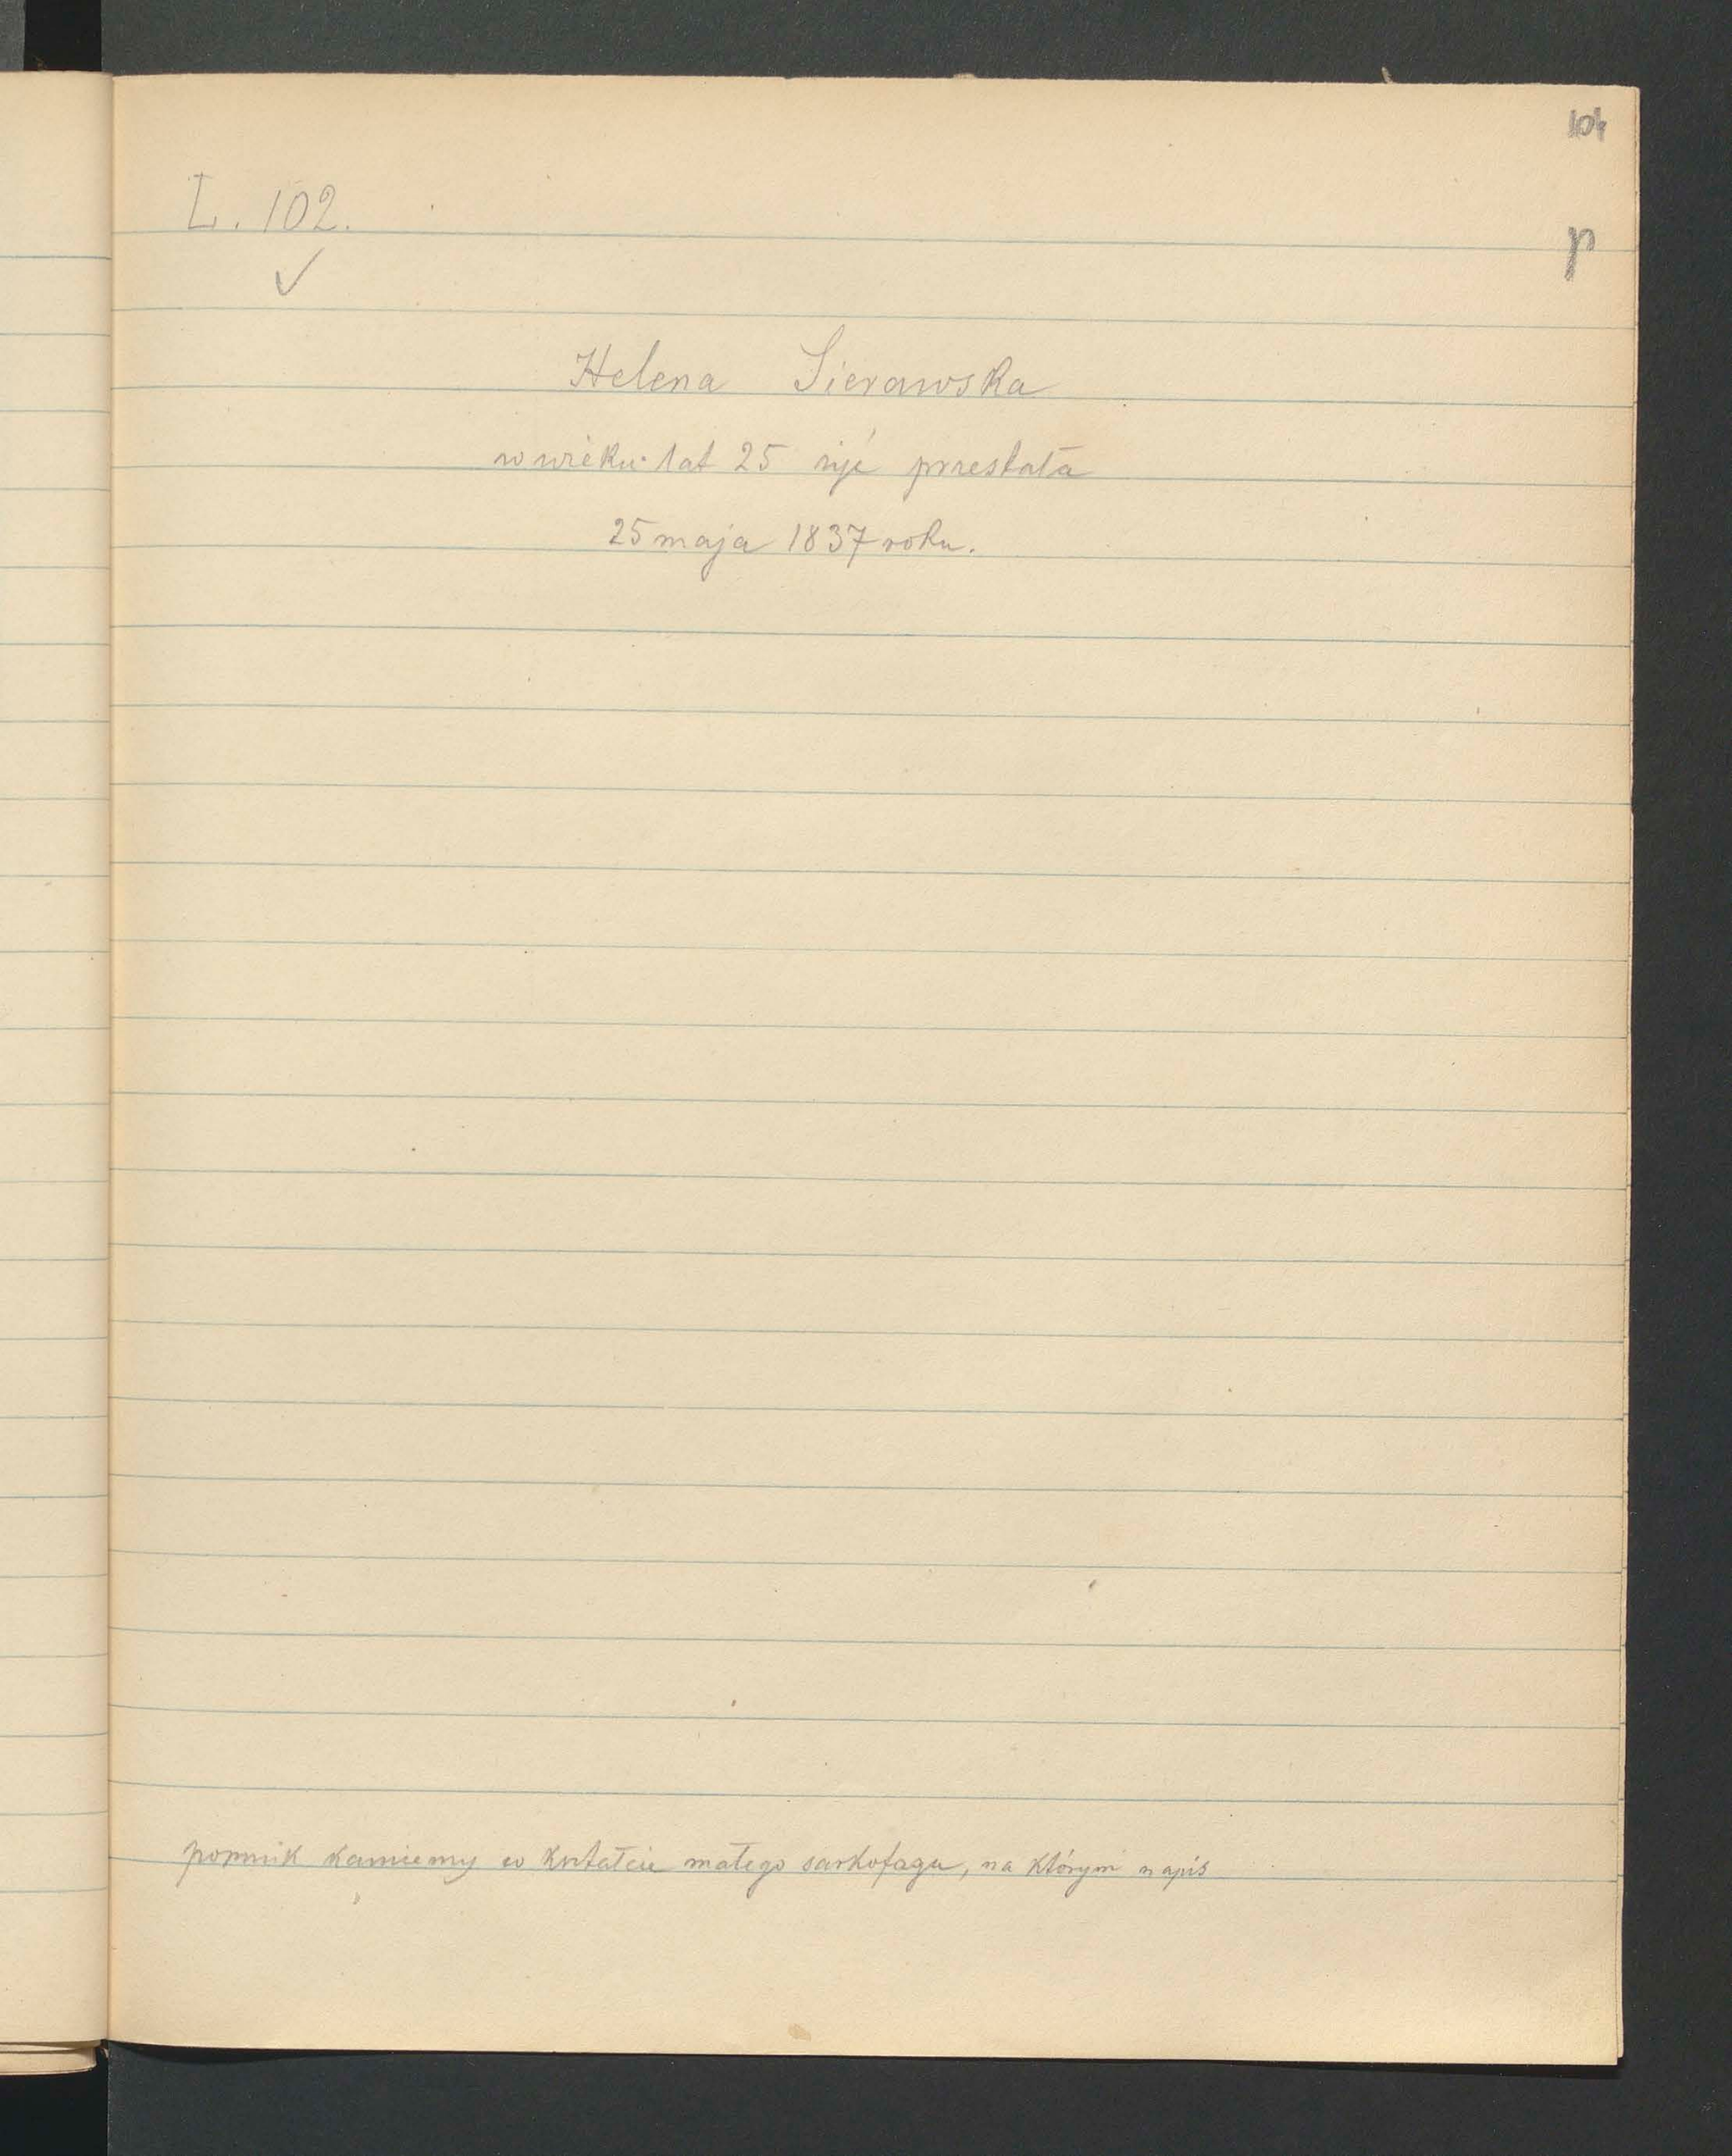 104
L. 102.
p
Helena Sierawska
w wieku lat 25 żyć przestała
25 maja 1837 roku.
pomnik kamienny w kształcie małego sarkofagu, na którym napis